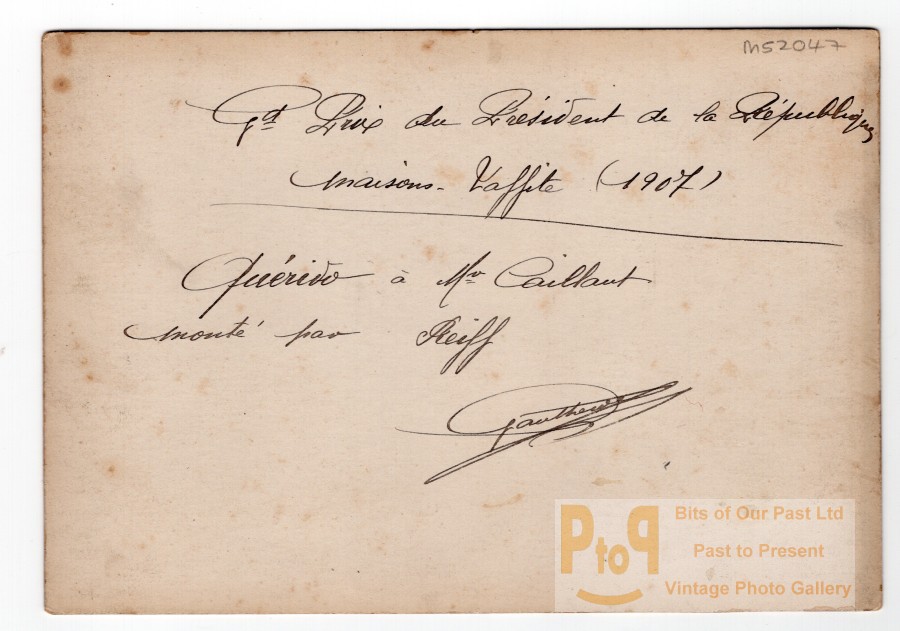 M52047
Gd Prix du Président de la République
Maisons-Laffite (1907)
Quérido à Mr Caillaut
monté par Reiff
PtoP
Bits of Our Past Ltd
Past to Present
Vintage Photo Gallery